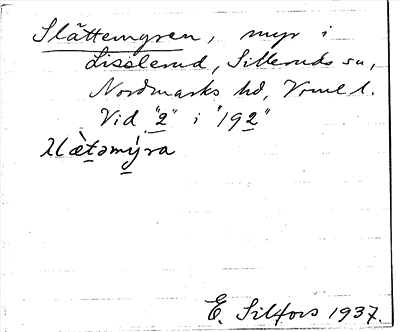 Slättemyren, myr i
Lisslerud, Silleruds sn,
Nordmarks hd, Vrml l.
Vid "2" i "192"
E. Silfors 1937.